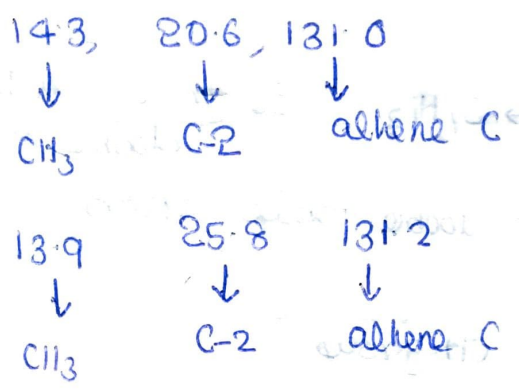 14.3, 20.6, 131.0
↓ ↓ ↓
CH₃ C-2 alkene C
13.9 25.8 131.2
↓ ↓ ↓
CH₃ C-2 alkene C